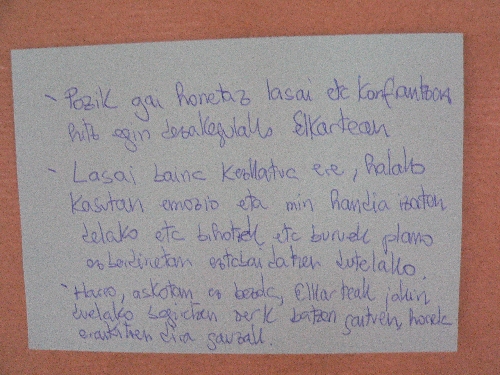 - Pozik gai honetaz lasai eta konfiantzan
hitz egin dezakegulako Elkartean
- Lasai baina kezkatua ere, halako
kasutan emozio eta min handia izaten
delako eta bihotzek eta buruek plano
ezberdinetan eztabaidatzen dutelako.
- Haero, askotan ez bada, Elkarteak jakin
duelako segitzen zerk batzen gaituen, horrela
eraikitzen dira gauzak.